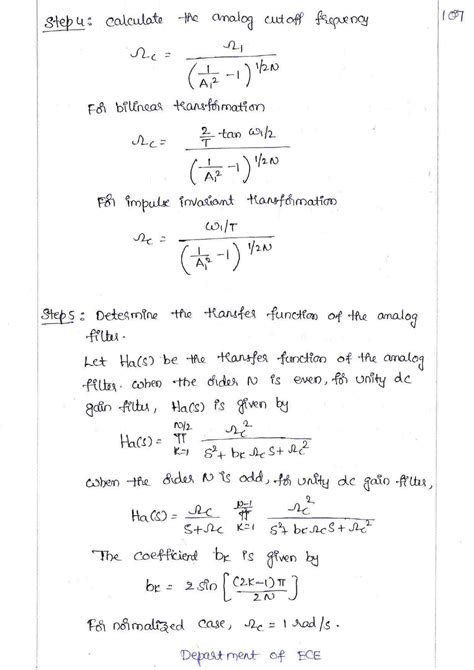 107
Step 4: Calculate the analog cutoff frequency
Ωc = Ω1 / (1/A1² - 1)^1/2N
For bilinear transformation
Ωc = 2/T tan ω1/2 / (1/A1² - 1)^1/2N
For impulse invariant transformation
Ωc = ω1/T / (1/A1² - 1)^1/2N
Step 5: Determine the transfer function of the analog
filter.
Let Ha(s) be the transfer function of the analog
filter. when the order N is even, for unity dc
gain filter, Ha(s) is given by
Ha(s) = N/2 π K=1 Ωc² / S²+ bk Ωc S + Ωc²
when the order N is odd, for unity dc gain filter,
Ha(s) = Ωc / S+Ωc N-1/2 π K=1 Ωc² / S²+ bk Ωc S + Ωc²
The coefficient bk is given by
bk = 2 sin [(2K-1)π / 2N]
For normalized case, Ωc = 1 rad/s.
Department of ECE